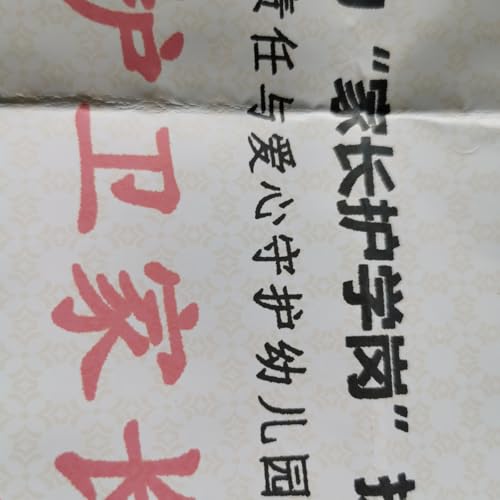 “家长护学岗”
责任与爱心守护幼儿园
护卫家长